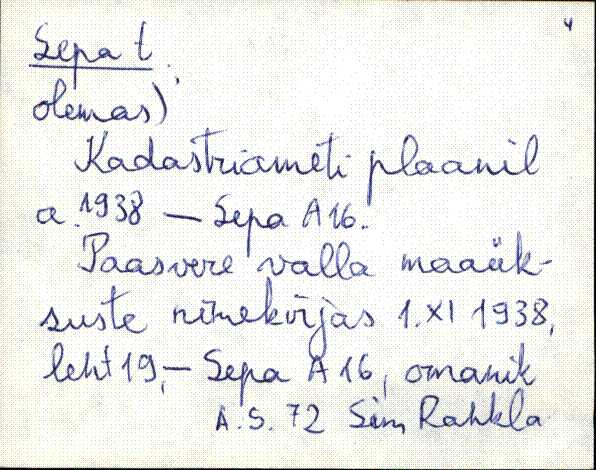 4
Sepa t.
olemas)
Kadastriameti plaanil
a. 1938 — Sepa A 16.
Paasvere valla maaük-
suste nimekirjas 1. XI 1938,
leht 19, — Sepa A 16, omanik
A. S. 72 Sim, Rahkla